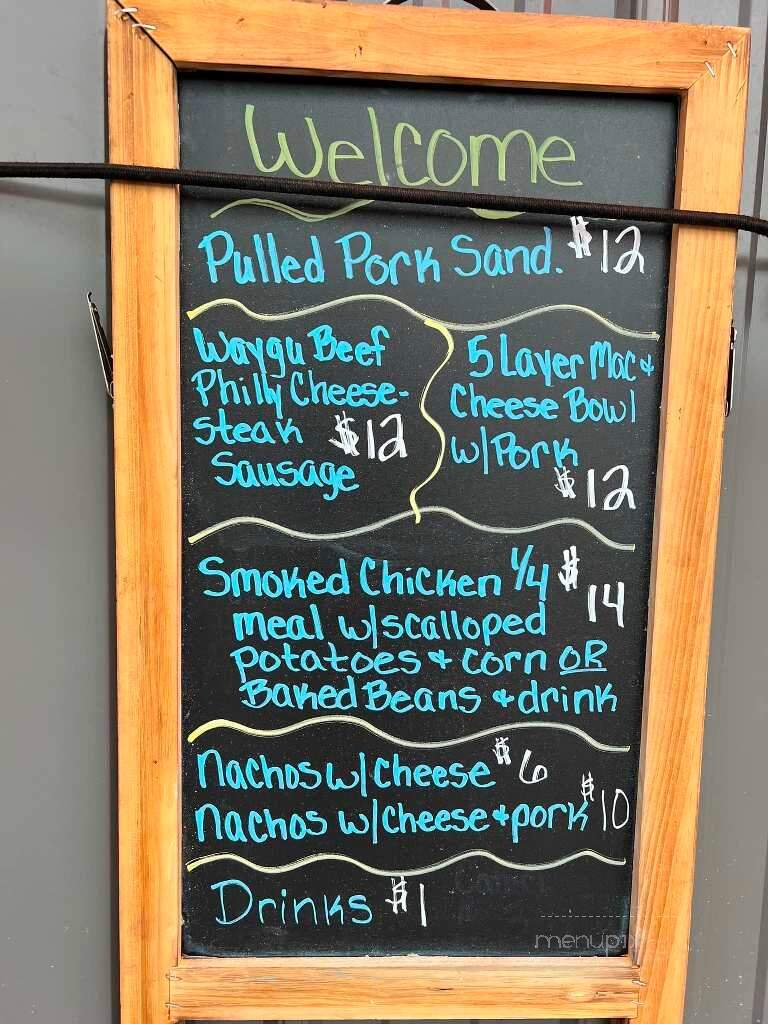 Welcome
Pulled Pork Sand. $12
Waygu Beef
Philly Cheese-
steak $12
Sausage
5 Layer Mac +
Cheese Bowl
w/Pork
$12
Smoked Chicken 1/4 $14
meal w/scalloped
potatoes + corn OR
Baked Beans + drink
Nachos w/cheese $6
Nachos w/cheese + pork $10
Drinks $1